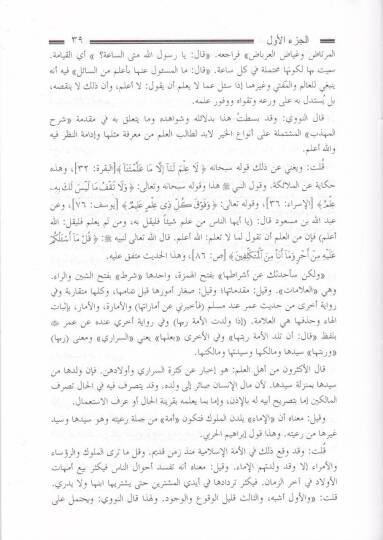 الجزء الأول ٣٩
المرتاض وغياض العرباض» فراجعه. «قال: يا رسول الله متى الساعة؟ » أي القيامة.
سميت بها لكونها محتملة في كل ساعة. «قال: ما المسئول عنها بأعلم من السائل» فيه أنه
ينبغي للعالم والمفتي وغيرهما إذا سئل عما لا يعلم أن يقول: لا أعلم، وأن ذلك لا ينقصه،
بل يُستدل به على ورعه وتقواه ووفور علمه.
قال النووي: وقد بسطتُ هذا بدلائله وشواهده وما يتعلق به في مقدمة «شرح
المهذب» المشتملة على أنواع الخير لابد لطالب العلم من معرفة مثلها وإدامة النظر فيه
والله أعلم.
قُلت: ويغني عن ذلك قوله سبحانه ﴿ لَا عِلْمَ لَنَآ إِلَّا مَا عَلَّمْتَنَآ ﴾[البقرة: ٣٢]، وهذه
حكاية عن الملائكة. وقول النبي ﷺ هذا وقوله سبحانه وتعالى: ﴿ وَلَا تَقْفُ مَا لَيْسَ لَكَ بِهِۦ
عِلْمٌ ﴾ [الإسراء: ٣٦]، وقوله تعالى: ﴿ وَفَوْقَ كُلِّ ذِى عِلْمٍ عَلِيمٌ ﴾ [يوسف: ٧٦]، وعن
عبد الله بن مسعود قال: (يا أيها الناس من علم شيئًا فليقل به، ومن لم يعلم فليقل: الله
أعلم) فإن من العلم أن تقول لما لا تعلم: الله أعلم. قال الله تعالى لنبيه ﷺ: ﴿ قُلْ مَآ أَسْـَٔلُكُمْ
عَلَيْهِ مِنْ أَجْرٍ وَمَآ أَنَا۠ مِنَ ٱلْمُتَكَلِّفِينَ ﴾ [ص: ٨٦]، وهذا الحديث متفق عليه.
«ولكن سأحدثك عن أشراطها» بفتح الهمزة، واحدها «شرط» بفتح الشين والراء.
وهي «العلامات». وقيل: مقدماتها؛ وقيل: صغار أمورها قبل تمامها، وكلها متقاربة وفي
رواية أخرى من حديث عمر عند مسلم (فأخبرني عن أماراتها) والأمارة، والأمار، بإثبات
الهاء وحذفها هي العلامة. (إذا ولدت الأمة ربها) وفي رواية أخري عنده عن عمر
بلفظ «قال: أن تلد الأمة ربتها» وفي الأخرى «بعلها» يعني «السراري» ومعنى (ربها)
«وربتها» سيدها ومالكها وسيدتها ومالكتها.
قال الأكثرون من أهل العلم: هو إخبار عن كثرة السراري وأولادهن. فإن ولدها من
سيدها بمنزلة سيدها. لأن مال الإنسان صائر إلى ولده. وقد يتصرف فيه في الحال تصرف
المالكين إما بتصريح أبيه له بالإذن، وإما بما يعلمه بقرينة الحال أو عرف الاستعمال.
وقيل: معناه أن «الإماء» يلدن الملوك فتكون «أمة» من جملة رعيته وهو سيدها وسيد
غيرها من رعيته. وهذا قول إبراهيم الحربي.
قُلت: وقد وقع ذلك في الأمة الإسلامية منذ زمن قديم. وقل ما ترى الملوك والرؤساء
والأمراء إلا وقد ولدتهم الإماء. وقيل: معناه أنه تفسد أحوال الناس فيكثر بيع أمهات
الأولاد في آخر الزمان. فيكثر تردادها في أيدي المشترين حتى يشتريها ابنها ولا يدري.
قلت: «والأول أشبه، والثالث قليل الوقوع والوجود. ولهذا قال النووي: ويحتمل على